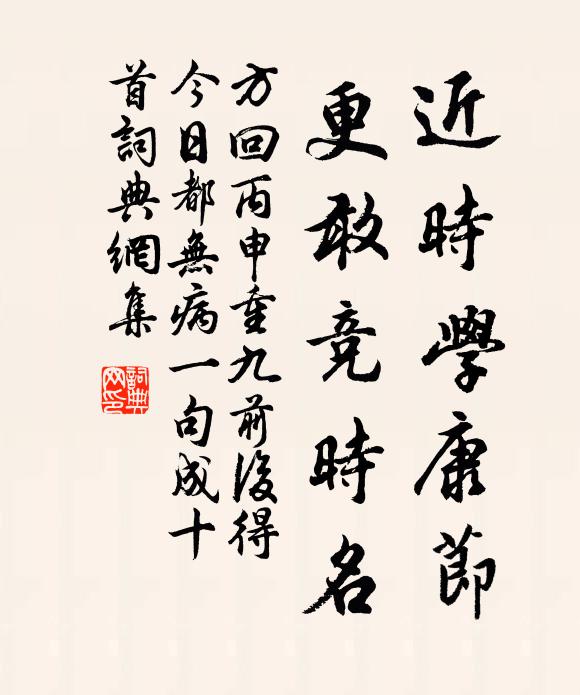 近時學康節
更敢竞時名
方回丙申重九前後得
今日都無病一句成十
首詞典網集
詞典
网印